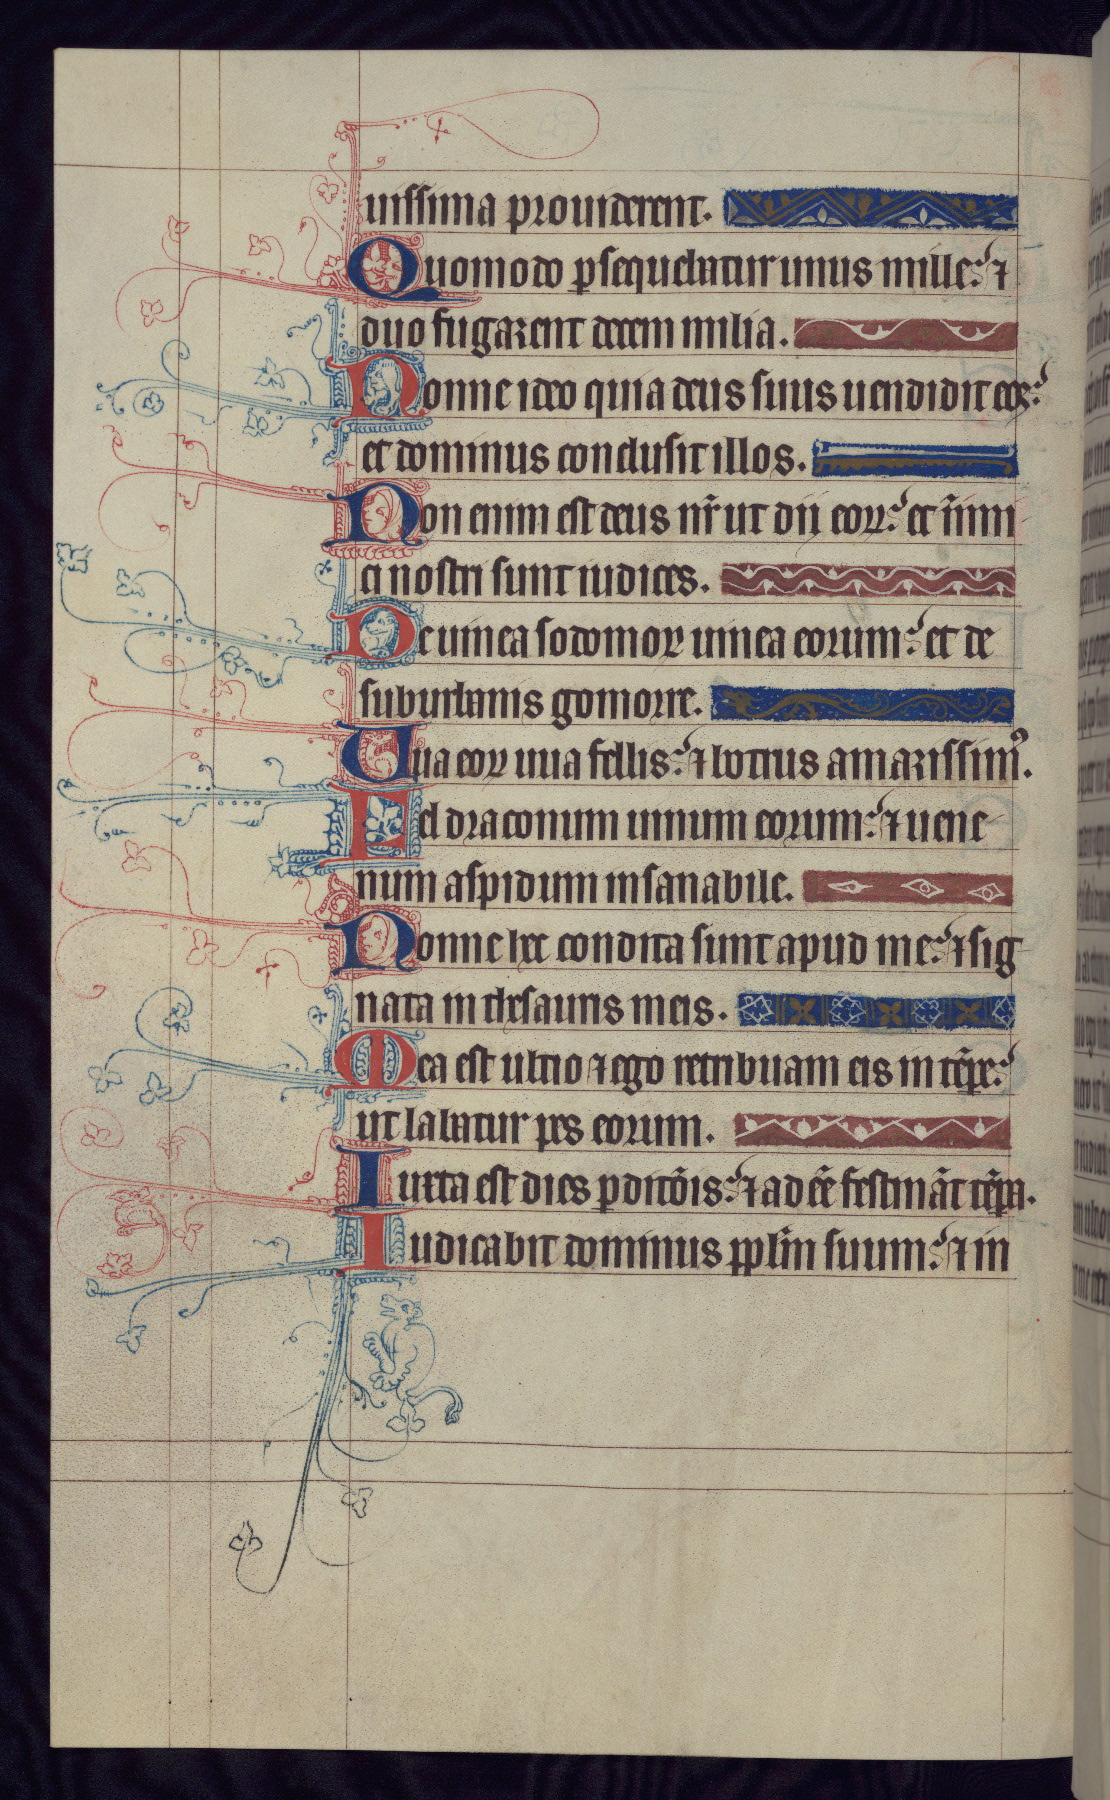 uissima prouiderent.
Quomodo psequebatur unus mille: ⁊
duo fugarent decem milia.
Nonne ideo quia deus suus uendidit eoꝝ:
et dominus conclusit illos.
Non enim est deus nr̃ ut dii eoꝝ: et inimi
ci nostri sunt iudices.
De uinea sodomoꝝ uinea eorum: et de
suburbanis gomorre.
Uua eoꝝ uua fellis: ⁊ botrus amarissimꝰ.
Fel draconum uinum eorum: ⁊ uene
num aspidum insanabile.
Nonne hec condita sunt apud me: ⁊ sig
nata in thesauris meis.
Mea est ultio ⁊ ego retribuam eis in tẽpe:
ut labatur pes eorum.
Iuxta est dies pditõis: ⁊ adeẽ festinãt tẽpa.
Iudicabit dominus pplm̃ suum: ⁊ in